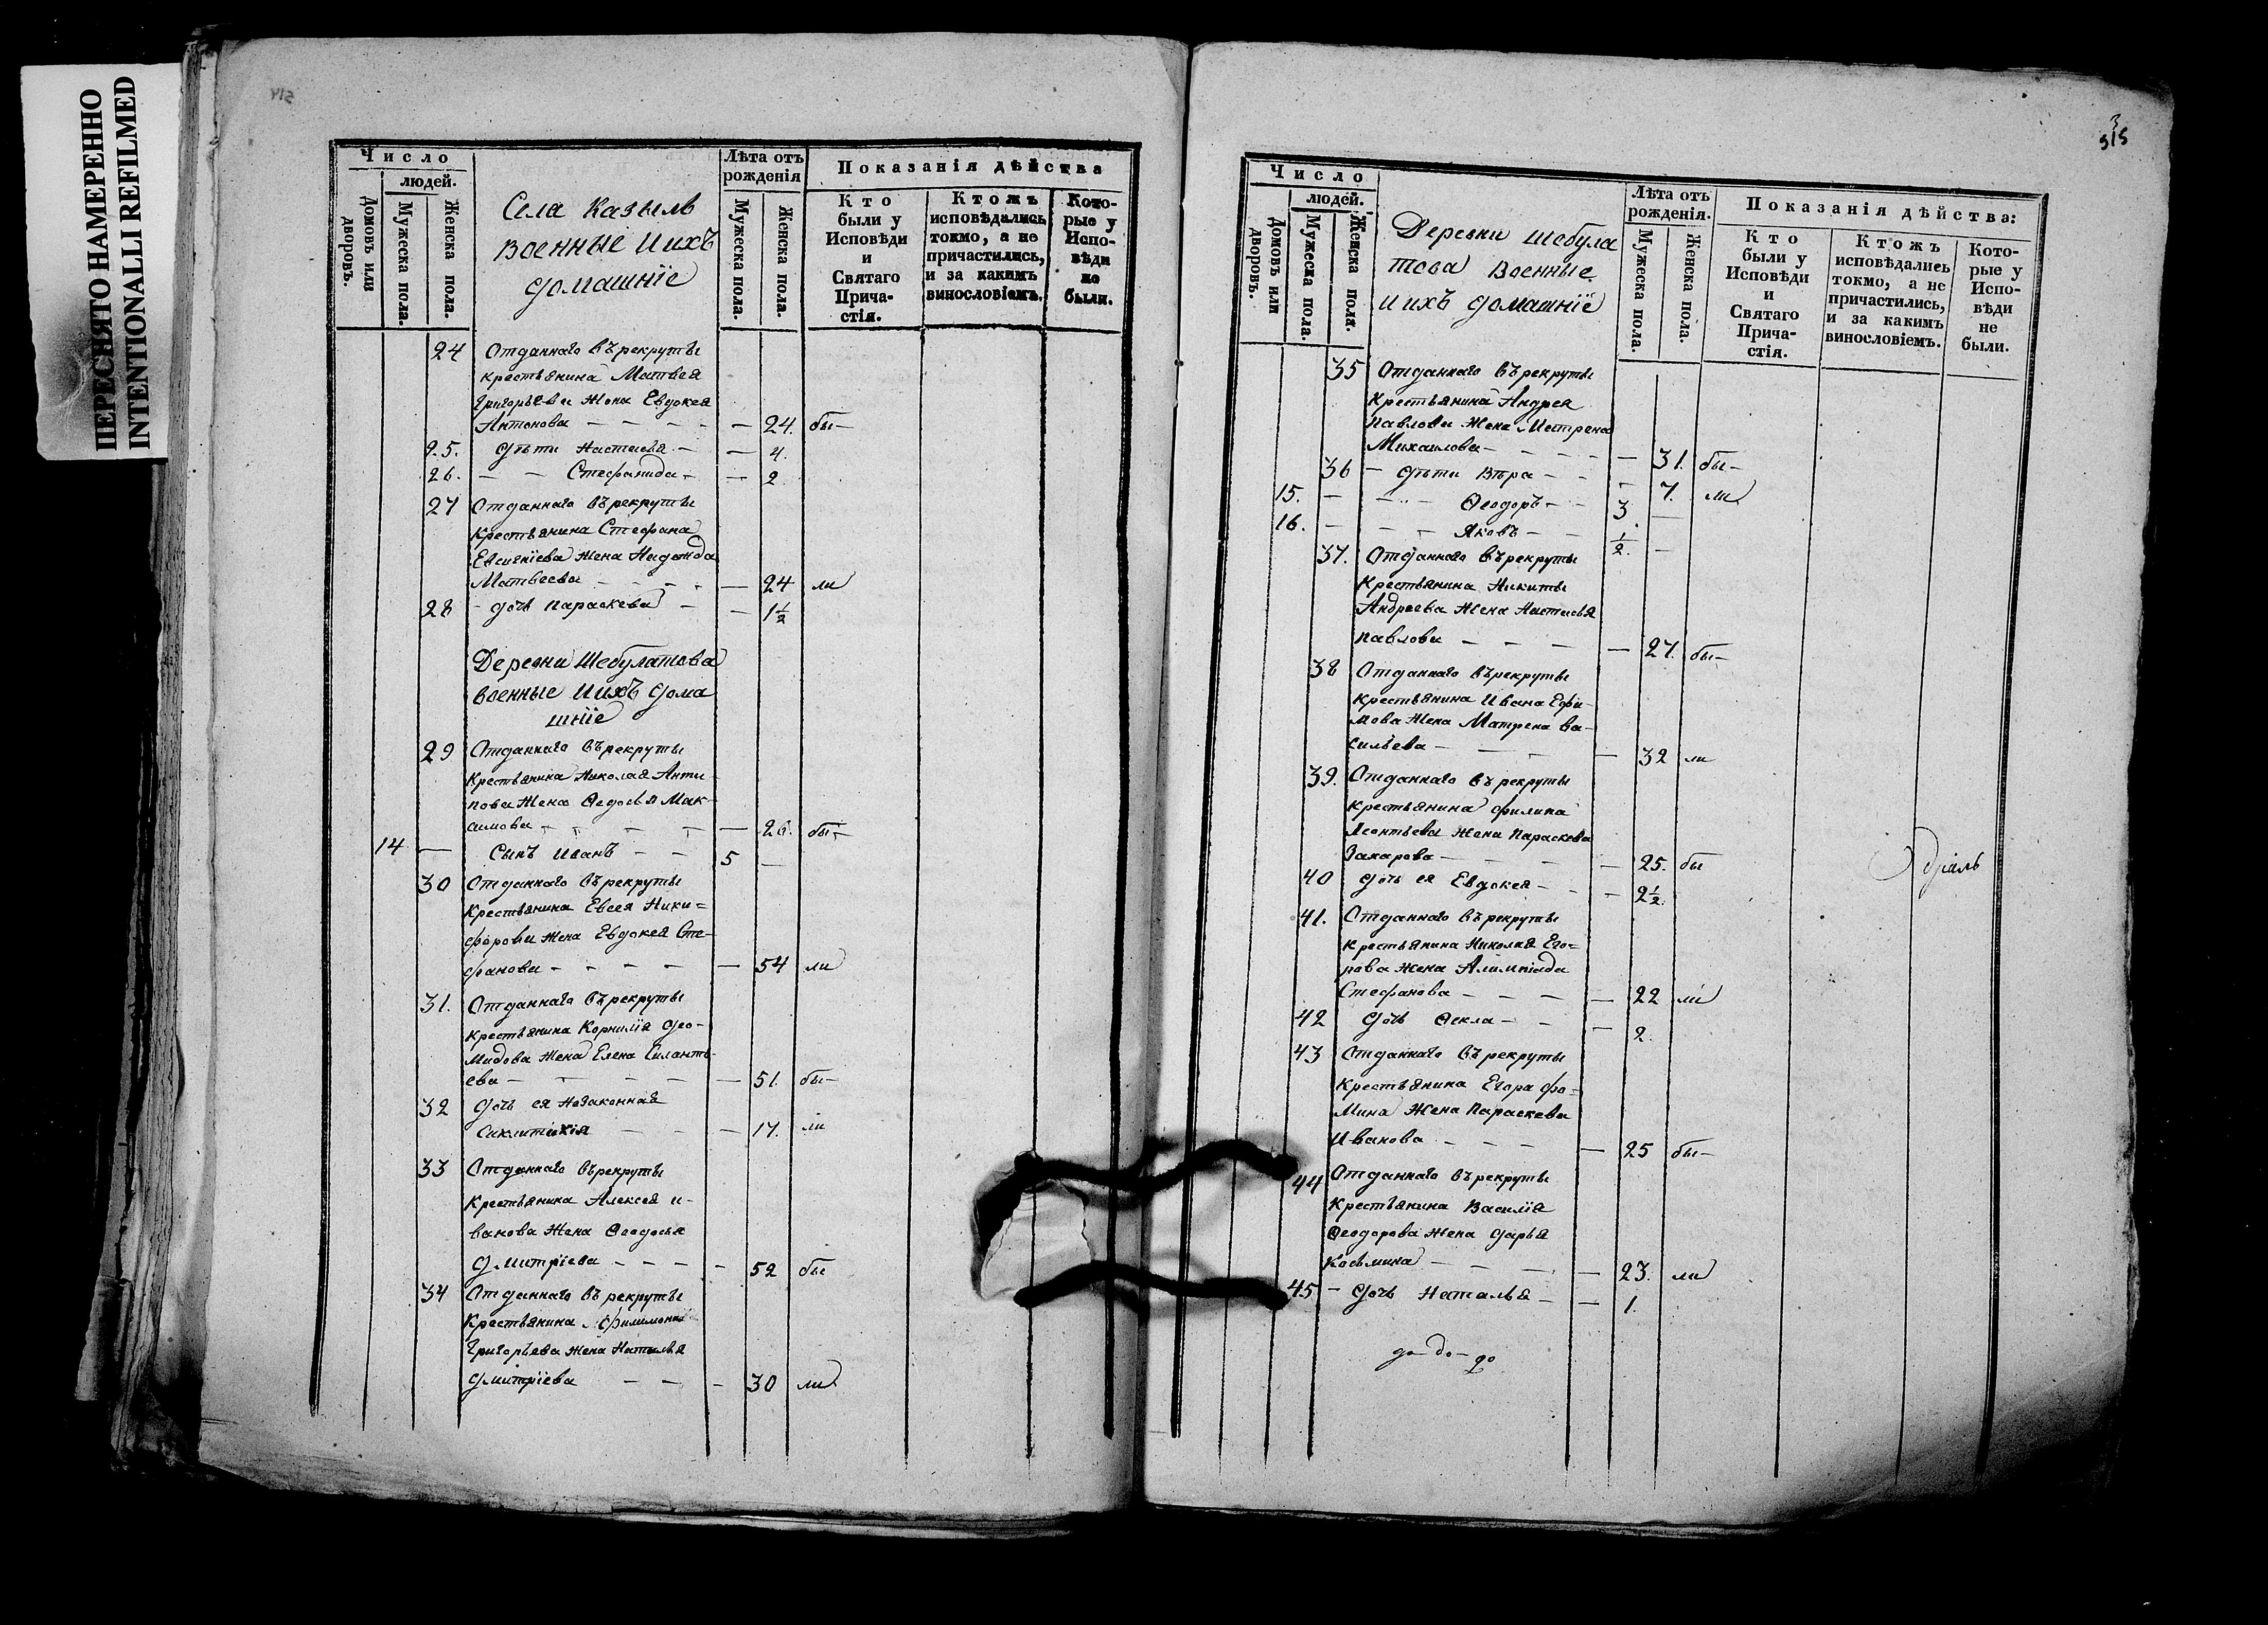 ПЕРЕСНЯТО НАМЕРЕННО
INTENTIONALLI REFILMED
Число
людей.
Домовъ или дворовъ.
Мужеска пола.
Женска пола.
Села Казыль
военные и ихъ
домашніе
Лѣта отъ
рожденія
Мужеска пола.
Женска пола.
Показанія дѣйства
Кто
были у
Исповѣди
и
Святаго
Прича-
стія.
Ктожъ
исповѣдались
токмо, а не
причастились,
и за какимъ
винословіемъ.
Кото-
рые у
Испо-
вѣди
не
были.
24 Отданнаго въ рекруты
крестьянина Матвея
Григорьева жена Евдокея
Антонова — — — — — 24. бы—
25. дѣти Настасья — — 4.
26. — — Стефанида — — 2
27 Отданнаго въ рекруты
крестьянина Стефана
Евсигніева жена
Матвеева — — — — — 24 ли
28 — дочь Параскева — — 1½
Деревни Шебулатова
военные и ихъ дома
шніе
29 Отданнаго въ рекруты
крестьянина Николая Анти-
пова жена Ѳедосья Мак-
симова — — — — — 26. бы—
14 — Сынъ Иванъ — — 5 —
30 Отданнаго въ рекруты
крестьянина Евсея Ники=
форова жена Евдокея Сте-
фанова — — — — — 54 ли
31. Отданнаго въ рекруты
крестьянина Корнилія Дио-
мидова жена Елена Силанть-
ева — — — — — 51. бы—
32 дочь ея незаконная
Синклитикія — — — 17. ли
33 Отданнаго въ рекруты
крестьянина Алексея И-
ванова жена Ѳеодосья
Дмитріева — — — — 52 бы
34 Отданнаго въ рекруты
крестьянина Филимона
Григорьева жена Наталья
Дмитріева — — — 30 ли
315
Число
людей.
Домовъ или дворовъ.
Мужеска пола.
Женска пола.
Деревни Шебула
това военные
и ихъ домашніе
Лѣта отъ
рожденія.
Мужеска пола.
Женска пола.
Показанія дѣйства:
Кто
были у
Исповѣди
и
Святаго
Прича-
стія.
Ктожъ
исповѣдались
токмо, а не
причастились,
и за какимъ
винословіемъ.
Кото-
рые у
Испо-
вѣди
не
были.
35 Отданнаго въ рекруты
крестьянина Андрея
Павлова жена Матрена
Михаилова — — — — — 31. бы—
36 — дѣти Вѣра — — — 7. ли
15. — — — Ѳеодоръ — — 3 —
16. — — — Яковъ — — ½. —
37. Отданнаго въ рекруты
крестьянина Никиты
Андреева жена Настасья
Павлова — — — — — 27. бы—
38 Отданнаго въ рекруты
крестьянина Ивана Ефи-
мова жена Матрена Ва-
сильева — — — — 32 ли
39. Отданнаго въ рекруты
крестьянина Филипа
Леонтьева жена Параскева
Захарова — — — — — 25. бы
40 дочь ея Евдокея — — — 2½.
41. Отданнаго въ рекруты
крестьянина Николая Его=
рова жена Алимпіада
Стефанова — — — — 22 ли
42 дочь Ѳекла — — — 2.
43 Отданнаго въ рекруты
крестьянина Егора Фо=
мина жена Параскева
Иванова — — — — 25 бы—
44 Отданнаго въ рекруты
крестьянина Василія
Ѳеодорова жена Дарья
Косьмина — — — — 23. ли
45 — дочь Наталья — — 1.